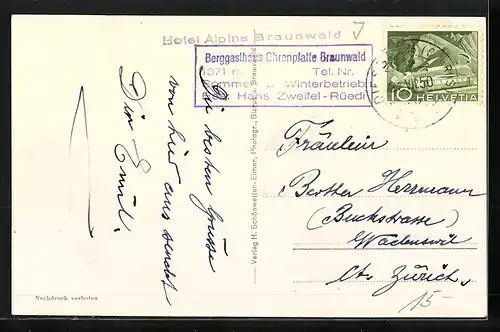 Hotel Alpina Braunwald
Berggasthaus Ohrenplatte Braunwald
1371 m Tel. Nr.
Sommer- u. Winterbetrieb
Hans Zweifel-Rüedi
50
10 HELVETIA
Die besten Grüsse
von hier aus sendet
Dir Emil.
Verlag H. Schönwetter-Elmer, Photogr., Glarus u. Braunwald
Fräulein
Bertha Herrmann
(Buckstrasse)
Wädenswil
Kt. Zürich.
15-
Nachdruck verboten